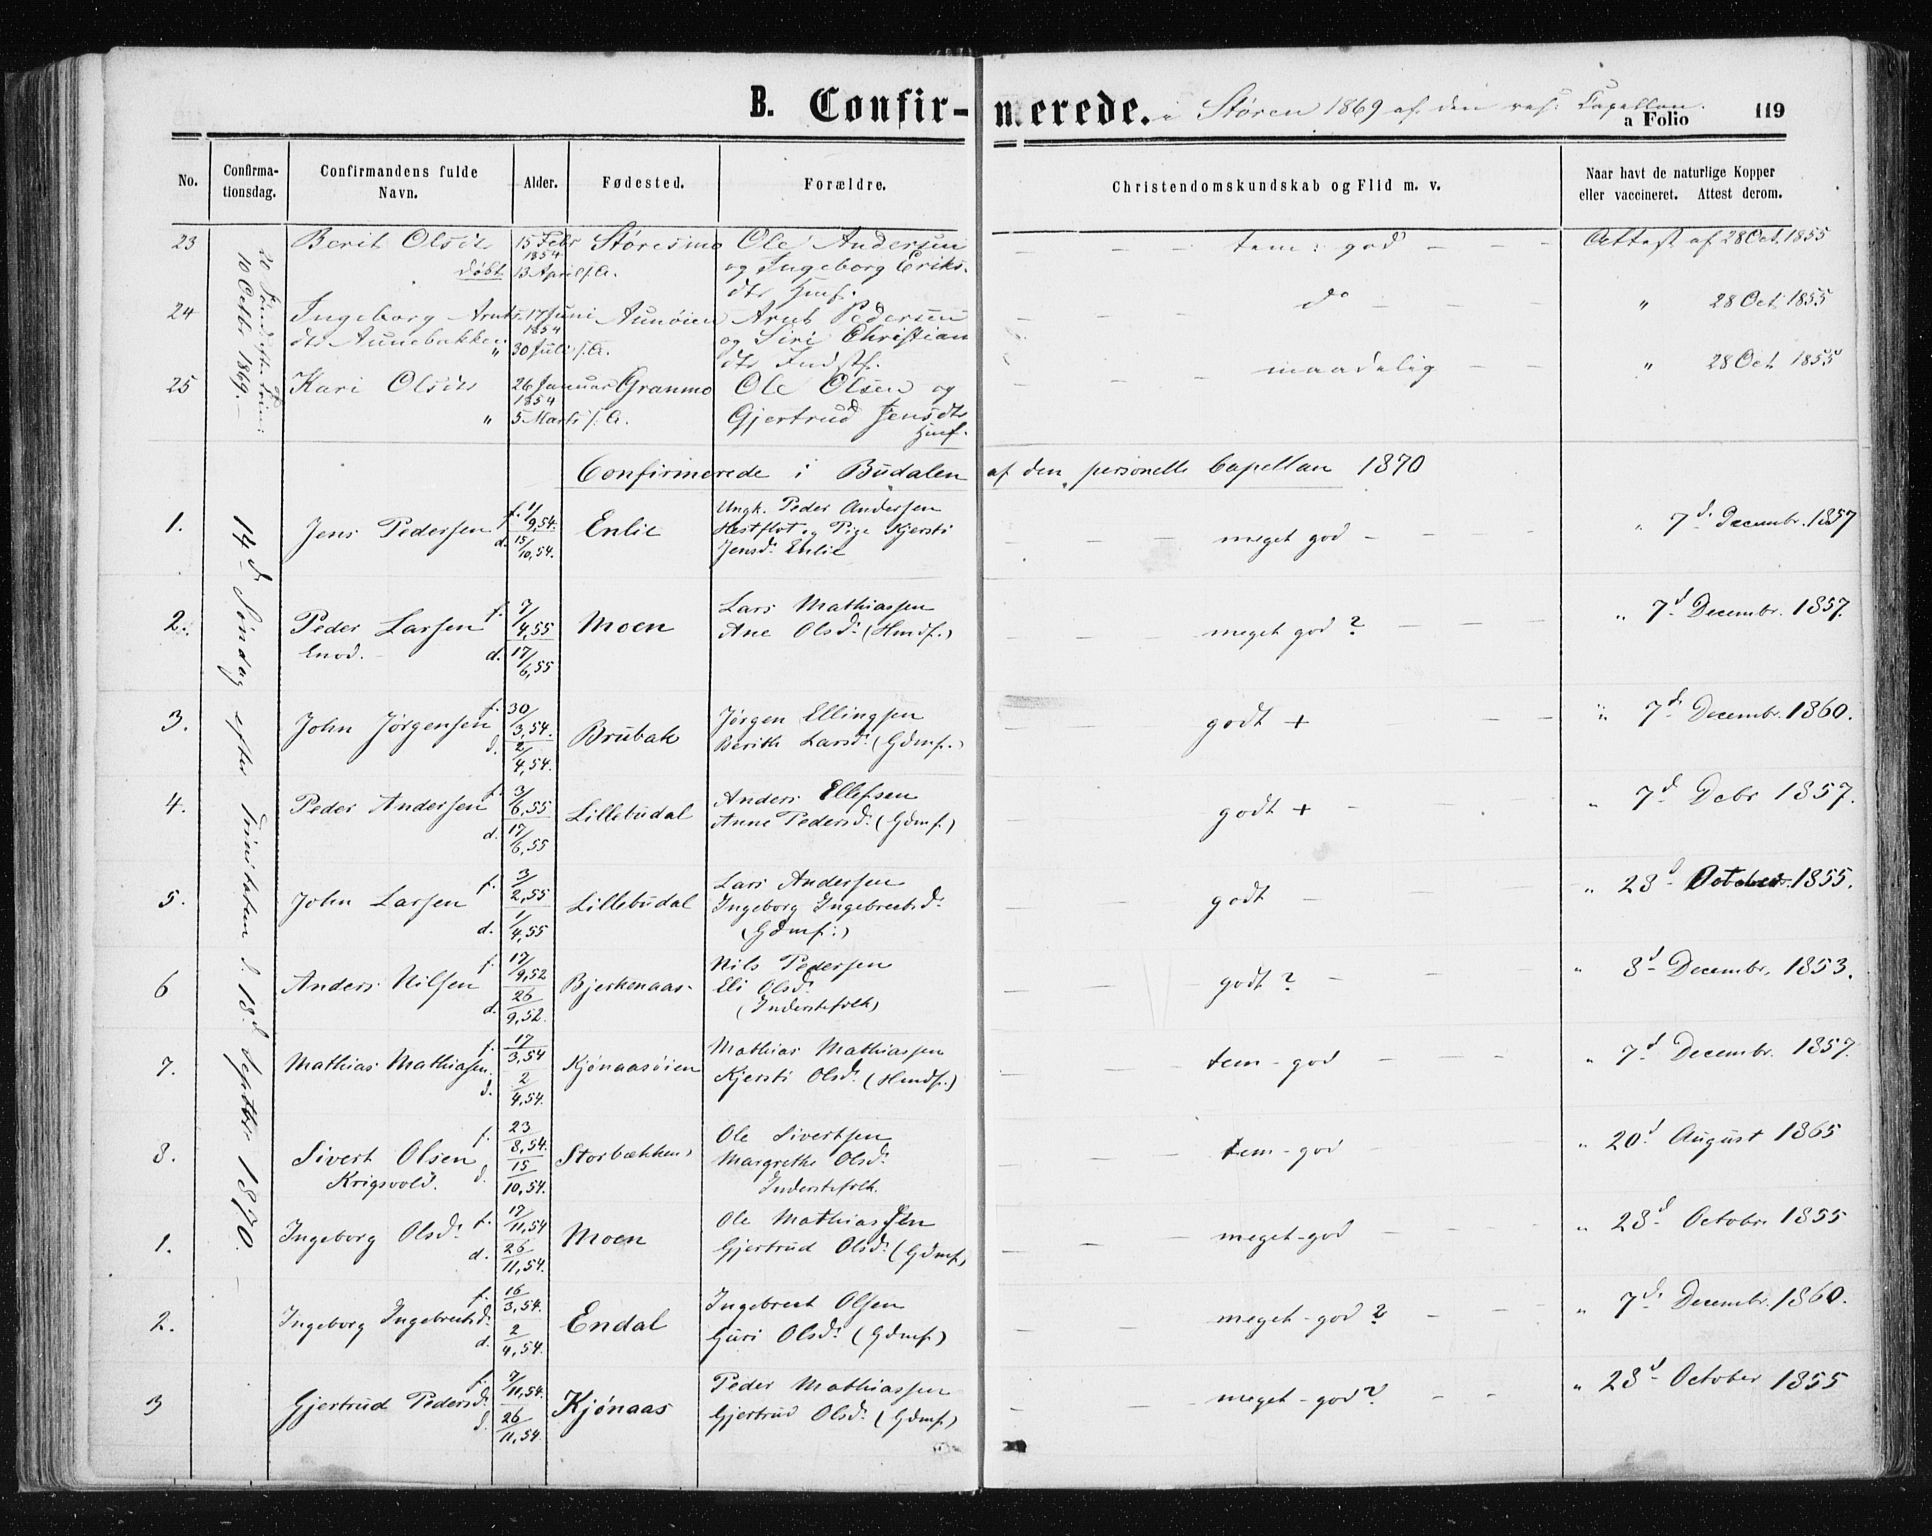 B. Confir- merede. i Støren 1869 af den res: Capellan.
a Folio 119
No.
Confirma-
tionsdag.
Confirmandens fulde
Navn.
Alder.
Fødested.
Forældre.
Christendomskundskab og Flid m. v.
Naar havt de naturlige Kopper
eller vaccineret. Attest derom.
20 Sønd. eft. Trin:
10 Octbr 1869.
23 Berit Olsdtr 15 Febr Støresmo Ole Andersen - - tem: god - - - Attest af 28 Oct. 1855
1854
døbt 13 April s. A. og Ingeborg Eriks-
dtr Husf.
24 Ingeborg Arnts- 17 Juni Aunøien Arnt Pedersen - - - do - - " 28 Oct 1855
1854
dtr Aunebakken " 30 Juli s. A. og Siri Christian
dtr Indstf.
25 Kari Olsdtr 26 Januar Granmo Ole Olsen og - - - maadelig - - " 28 Oct 1855
1854
" 5 Marts s. A. Gjertrud Jensdtr
Husf.
Confirmerede i Budalen af den personelle Capellan 1870
14d Søndag efter Trinitatem d. 18d Septbr. 1870. -
1. Jens Pedersen f. 1/9,54. Enlie Ungk. Peder Andersen
d. 15/10,54. Hestflot og Pige Kjersti
Jensd. Enlie - - - meget god - - - " 7d Decembr. 1857
2. Peder Larsen f. 7/4,55 Moen Lars Mathiassen
Enod. d. 17/6,55 Ane Olsd. (Hmdf.) - - meget god ? - - - " 7d Decembr. 1857.
3. John Jørgensen f. 30/3,54. Brubak Jørgen Ellingsen
d. 2/4,54. Berith Larsd. (Gdmf.) - - - godt + - - - " 7d Decembr. 1860.
4. Peder Andersen f. 3/6,55 Lillebudal Anders Ellefsen
d. 17/6,55 Anne Pedersd. (Gdmf.) - - - godt + - - - " 7d Debr 1857.
5. John Larsen f. 3/2,55 Lillebudal Lars Andersen
d. 1/4,55 Ingeborg Ingebrectsd.
(Gdmf.) - - - godt - - - " 28d October. 1855.
6 Anders Nilsen f. 17/9,52 Bjerkenaas. Nils Pedersen
d. 26/9,52. Eli Olsd.
(Inderstefolk) - - - godt ? - - - " 8d Decembr. 1853.
7. Mathias Mathiassen. f. 17/3,54 Kjønaasøien Mathias Mathiassen
d. 2/4,54. Kjersti Olsd. (Hmdf.) - - - tem-god - - - " 7d Decembr. 1857.
8. Sivert Olsen f. 23/8,54. Storbækken Ole Sivertsen
Krigsvold. d. 15/10,54. Margrethe Olsd.
Inderstefolk. - - - tem-god - - - " 20d August 1865
1. Ingeborg Olsd. f. 17/11,54 Moen Ole Mathiassen
d. 26/11,54. Gjertrud Olsd. (Gdmf.) - - - meget-god - - - " 28d Octobr. 1855
2. Ingeborg Ingebrectsd. f. 16/3,54. Endal Ingebrect Olsen
d. 2/4,54. Guri Olsd. (Gdmf.) - - - meget-god ? - - - " 7d Decembr. 1860.
3 Gjertrud Pedersd. f. 7/11,54. Kjønaas Peder Mathiassen
d. 26/11,54. Gjertrud Olsd. (Gdmf.) - - - meget-god ? - - " 28d October 1855